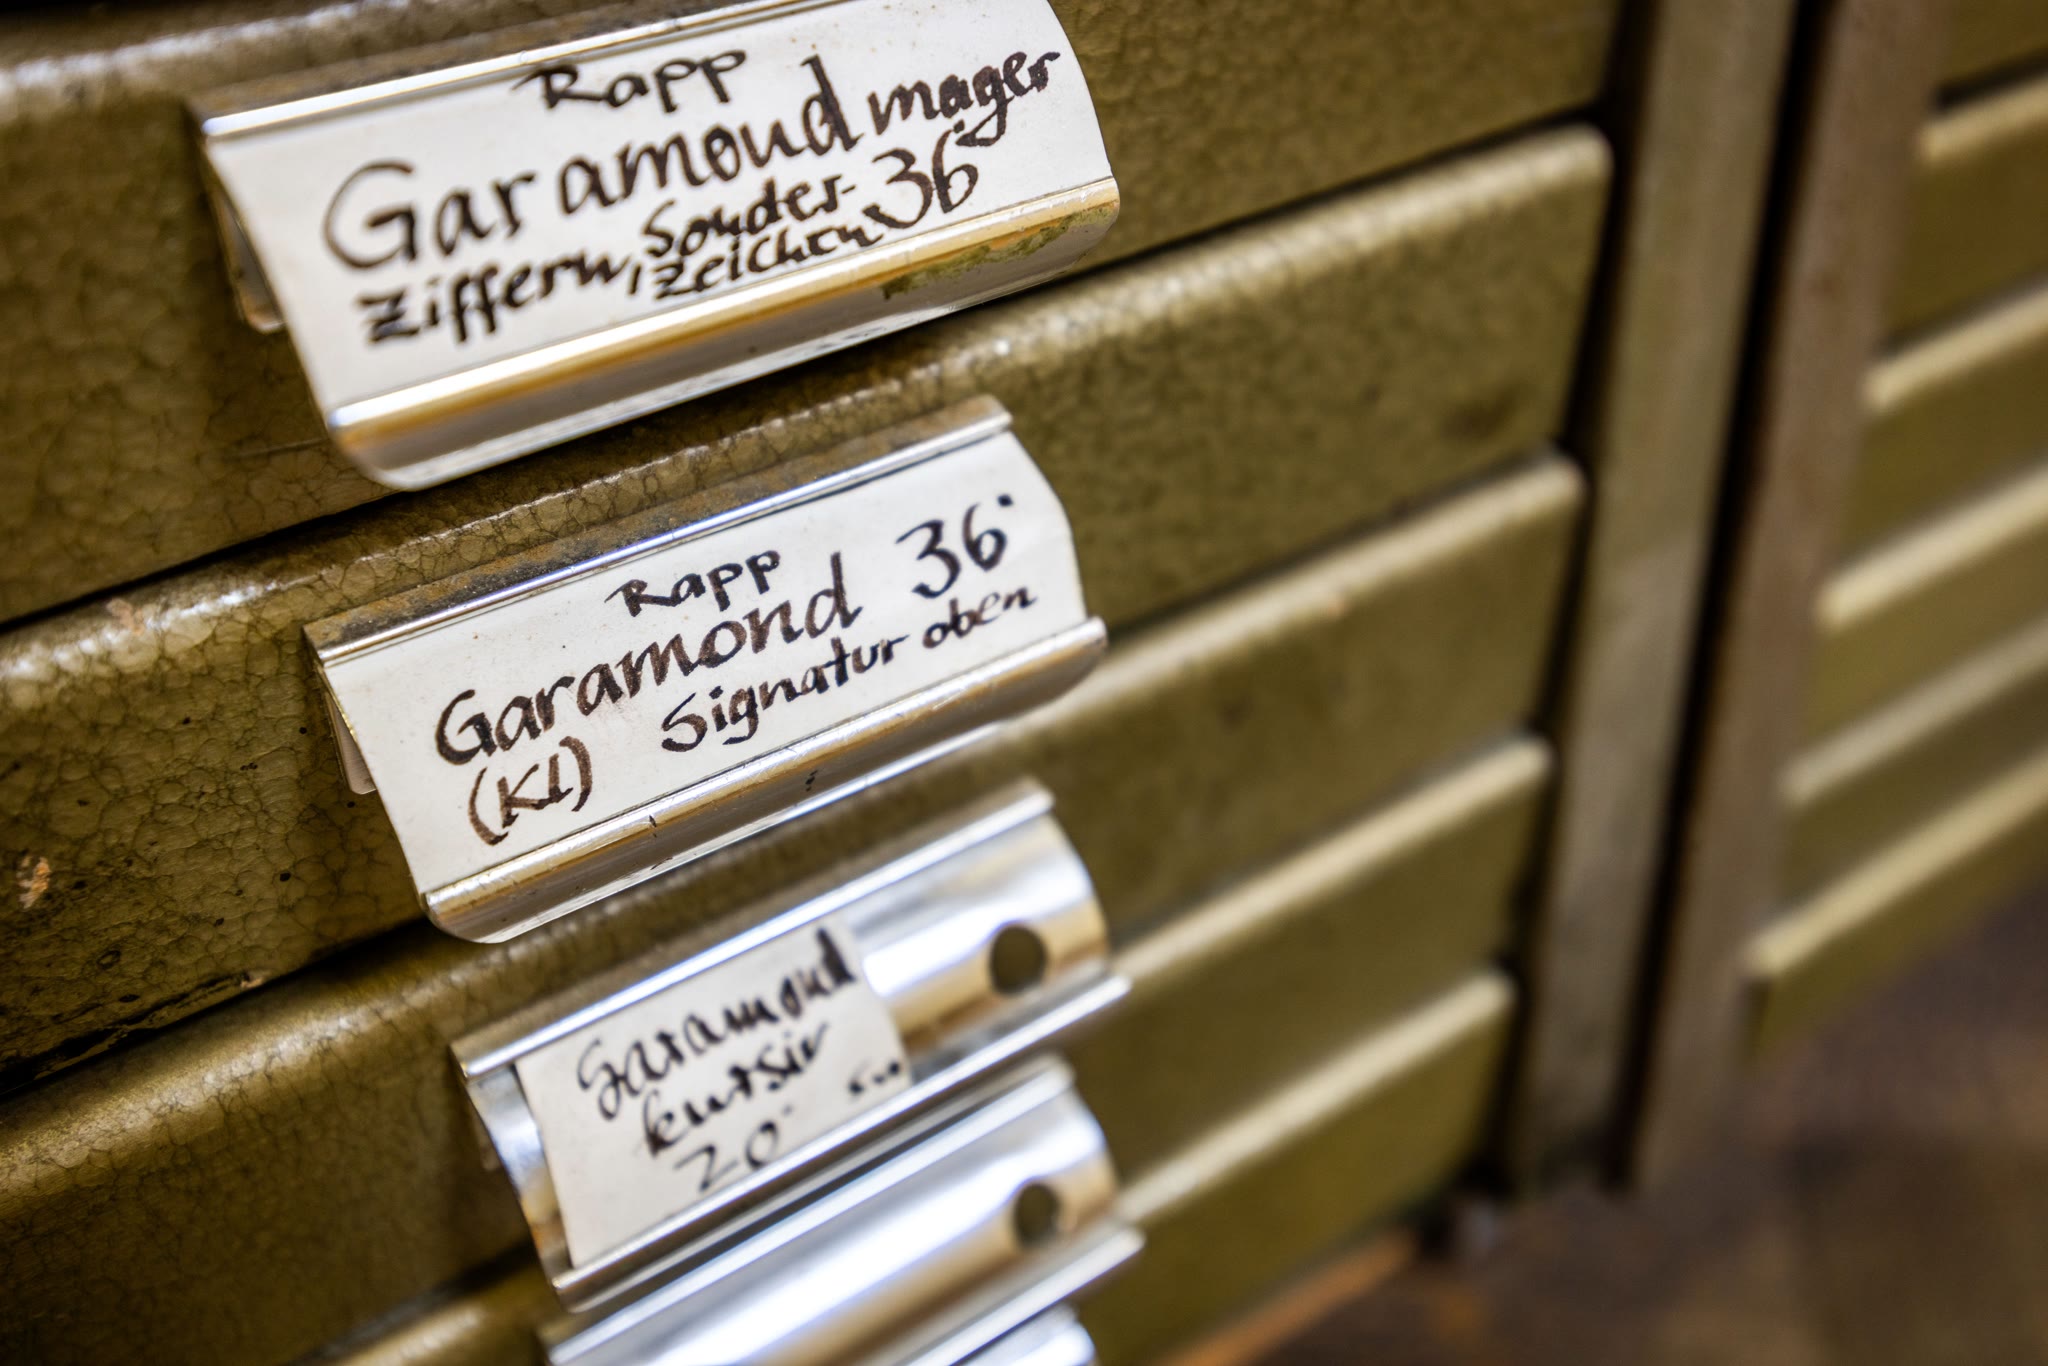 Rapp
Garamond mager
Ziffern, Sonder-
zeichen 36·
Rapp
Garamond 36·
(Kl) Signatur oben
Garamond
kursiv
20·